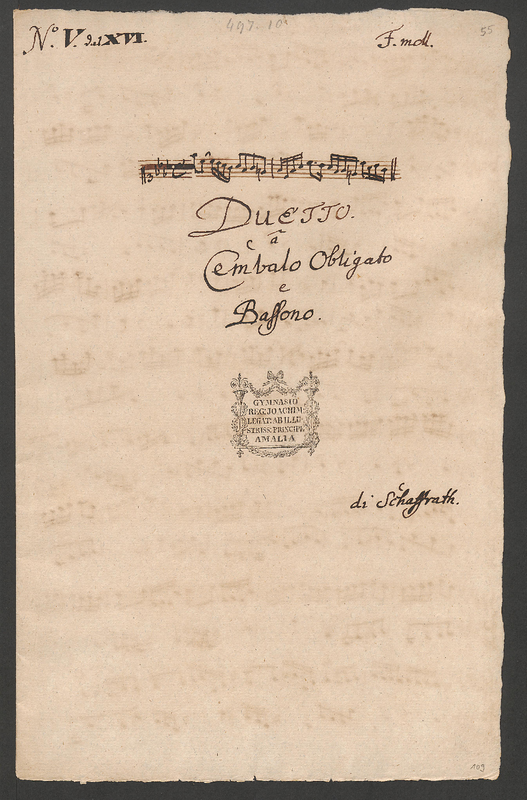 No. V. del XVI.
F. moll.
497-10
55
DUETTO.
ã
Cembalo Obligato
e
Bassono.
GYMNASIO
REG. JOACHIM.
LEGAT. AB ILLU-
STRISS. PRINCIPE
AMALIA
di Schaffrath.
109